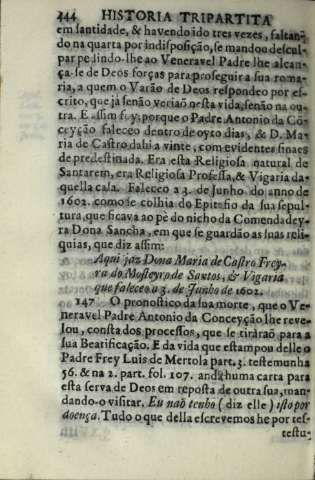 444 HISTORIA TRIPARTITA
em santidade, & havendo ido tres vezes, faltan-
do na quarta por indisposição, se mandou descul-
par pedindo-lhe ao Veneravel Padre lhe alcan-
ça-se de Deos forças para proseguir a sua roma-
ria, a quem o Varão de Deos respondeo por es-
crito, que já senão verião nesta vida, senão na ou-
tra. E assim foy, porque o Padre Antonio da Cõ-
ceyção faleceo dentro de oyto dias, & D. Ma-
ria de Castro dahi a vinte, com evidentes sinaes
de predestinada. Era esta Religiosa natural de
Santarem, era Religiosa Professa, & Vigaria da-
quella casa. Faleceo a 3. de Junho do anno de
1602. como se colhia do Epitafio da sua sepul-
tura, que ficava ao pè do nicho da Comendadey-
ra Dona Sancha, em que se guardão as suas reli-
quias, que diz assim:
Aqui jaz Dona Maria de Castro Frey-
ra do Mosteyro de Santos, & Vigaria
que faleceo a 3. de Junho de 1602.
147 O pronostico da sua morte, que o Ve-
neravel Padre Antonio da Conceyção lhe reve-
lou, consta dos processos, que se tiràrão para a
sua Beatificação. E da vida que estampou delle o
Padre Frey Luis de Mertola part. 3. testemunha
56. & na 2. part. fol. 107. anda huma carta para
esta serva de Deos em reposta de outra sua, man-
dando-o visitar. Eu não tenho (diz elle) isto por
doença. Tudo o que della escrevemos he por tes-
testu-